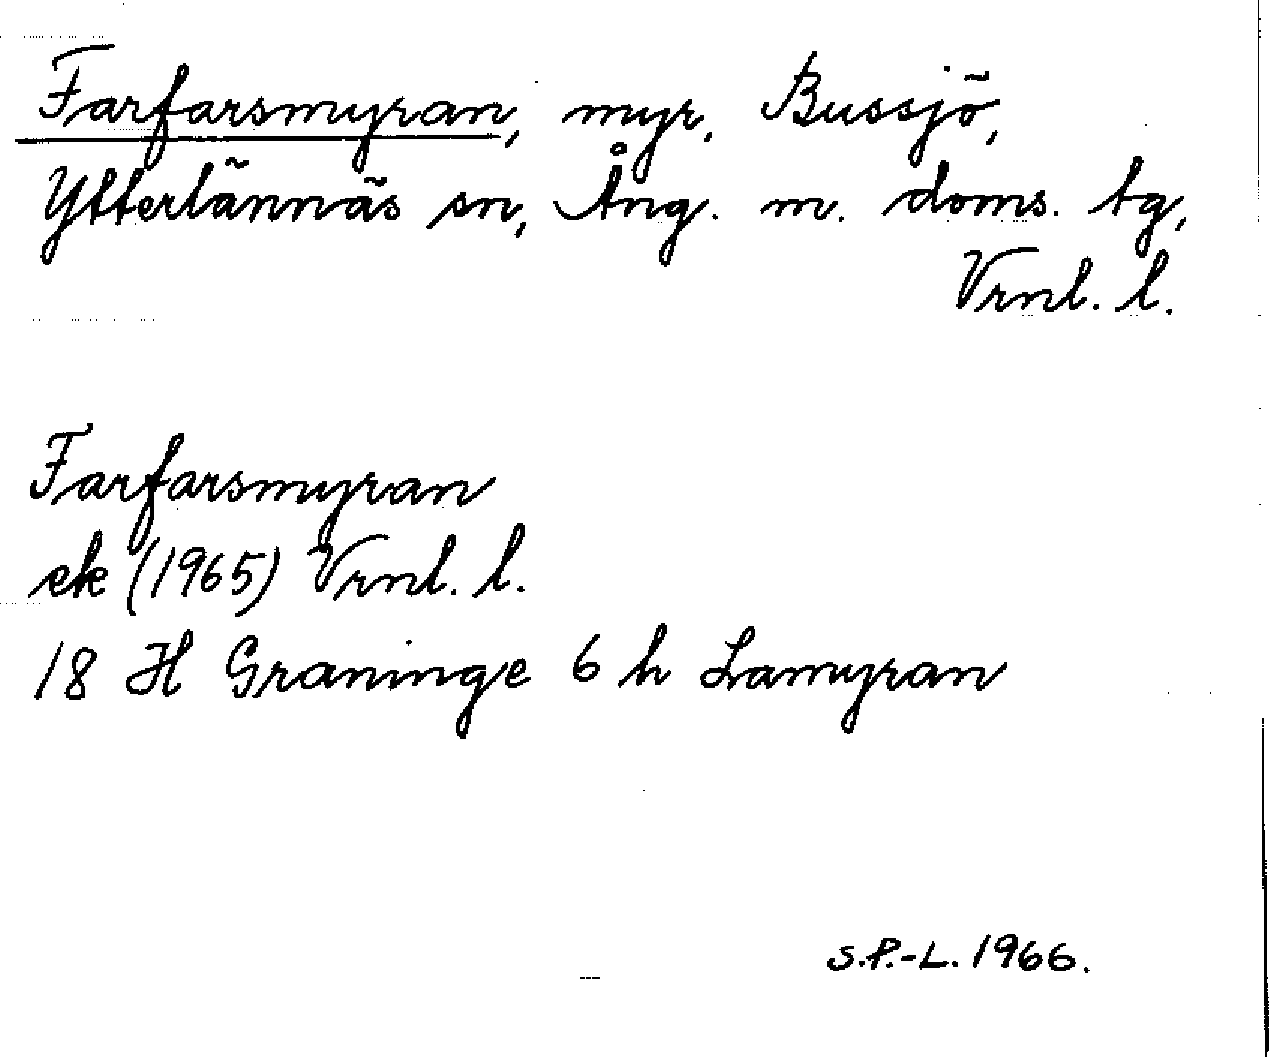 Farfarsmyran, myr, Bussjö,
Ytterlännäs sn, Ång. m. doms. tg,
Vrnl. l.
Farfarsmyran
ek (1965) Vrnl. l.
18 H Graninge 6 h Lamyran
S.P.-L. 1966.